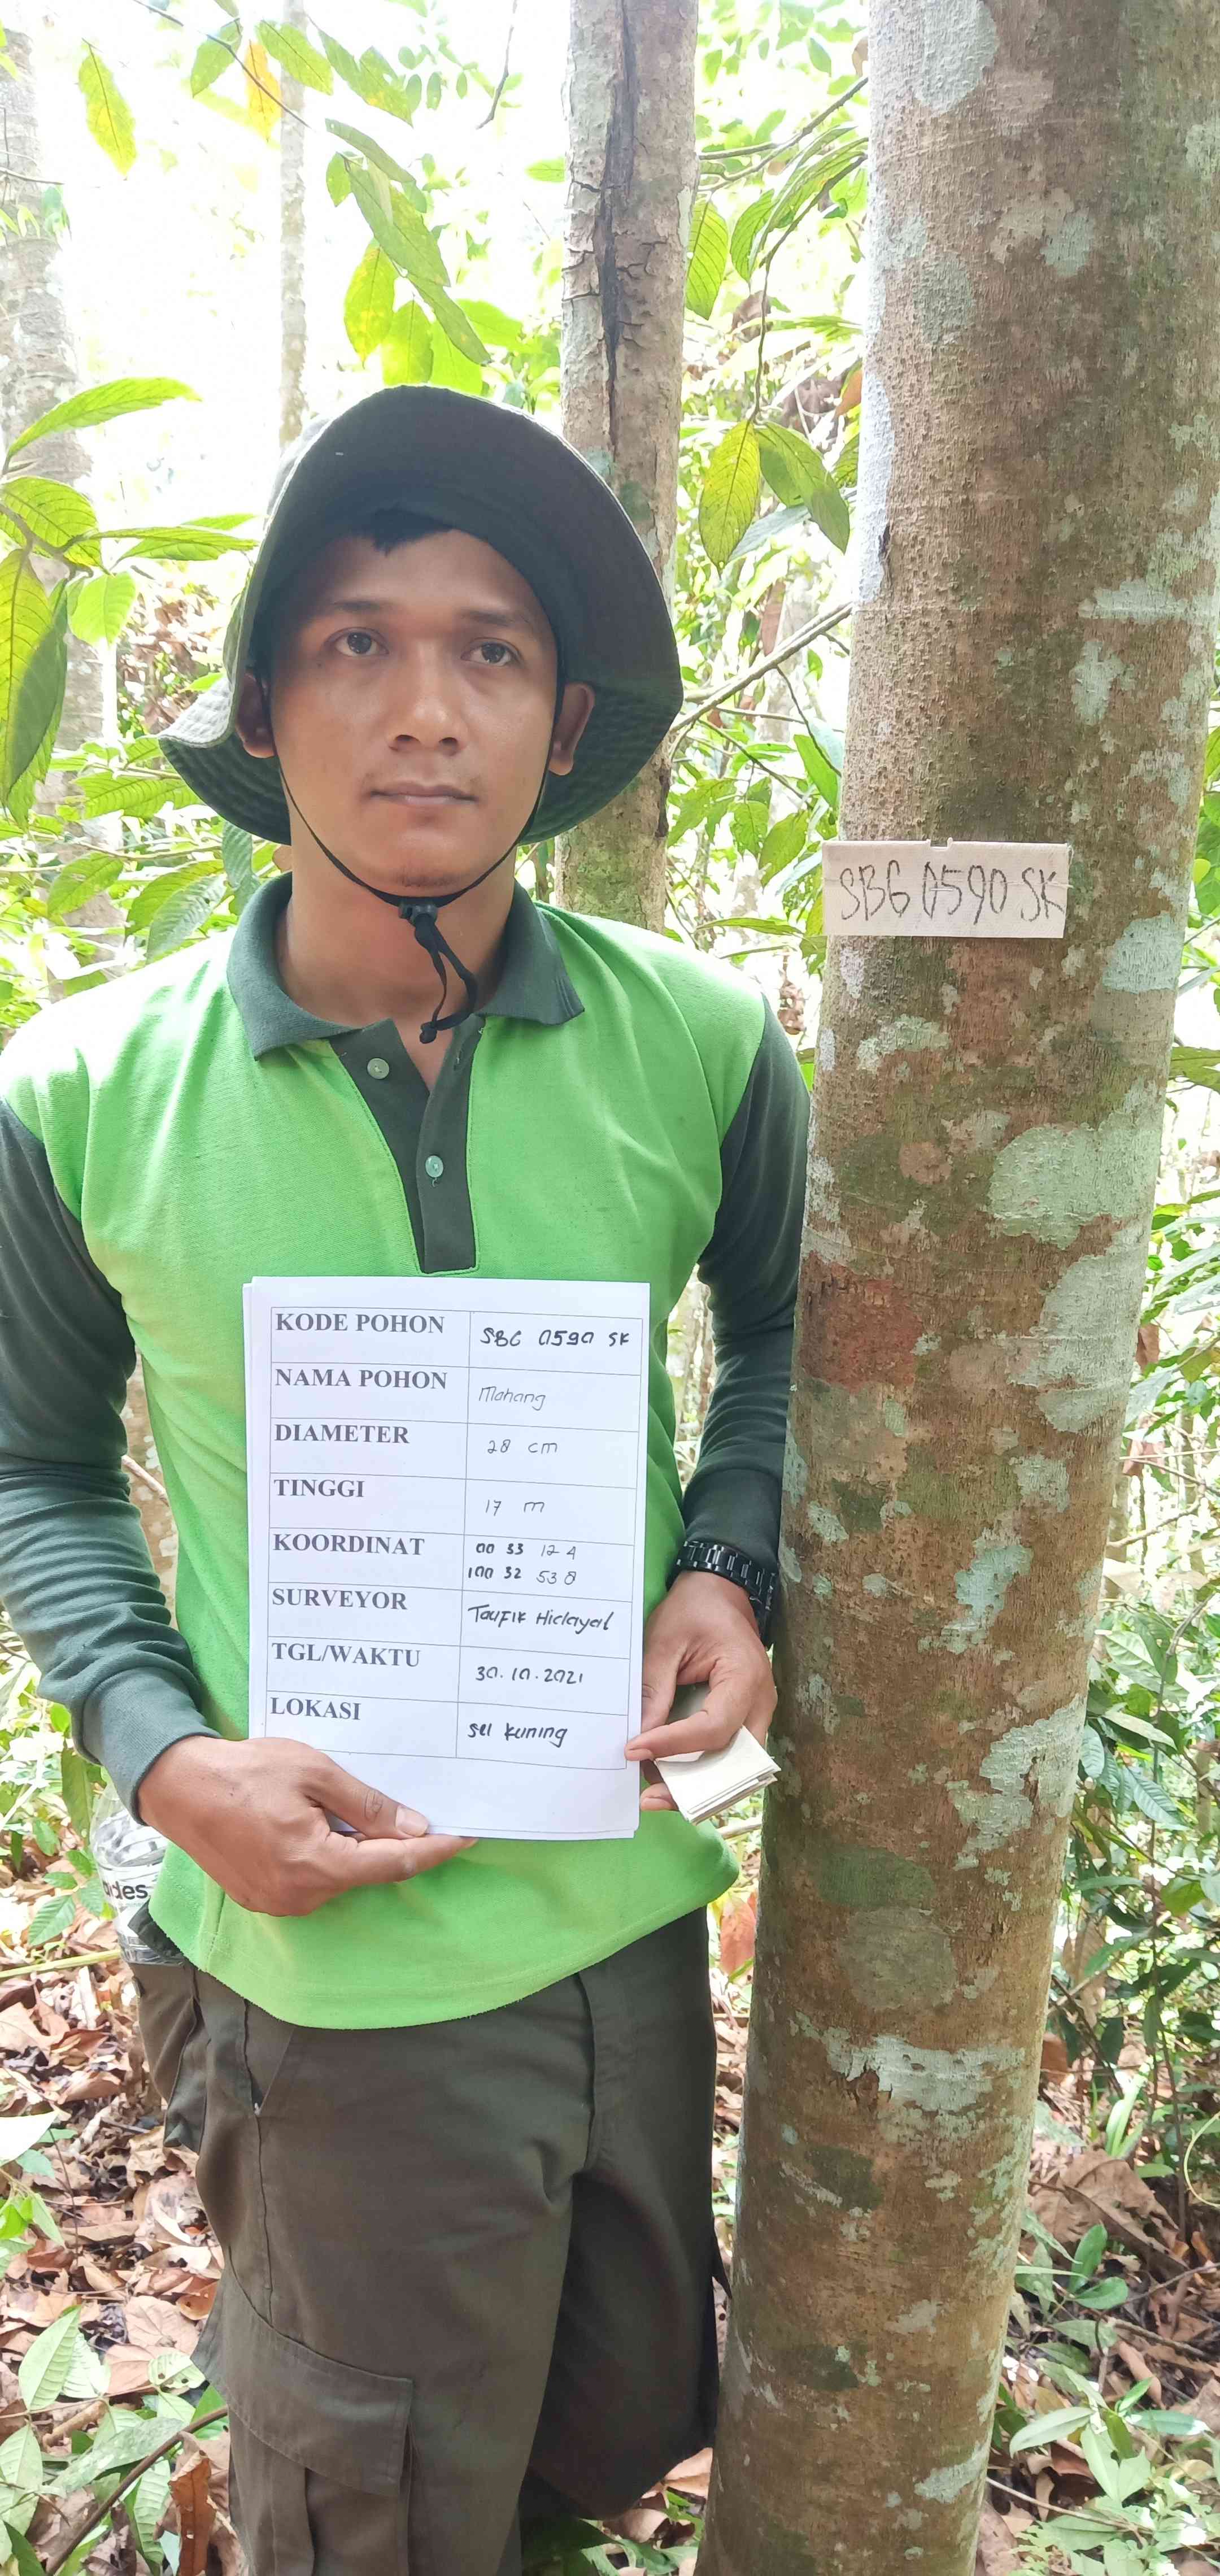 SBG 0590 SK
KODE POHON SBG 0590 SK
NAMA POHON Mahang
DIAMETER 28 cm
TINGGI 17 m
KOORDINAT 00 33 12 4
100 32 53 8
SURVEYOR Taufik Hidayat
TGL/WAKTU 30.10.2021
LOKASI sei kuning
ades